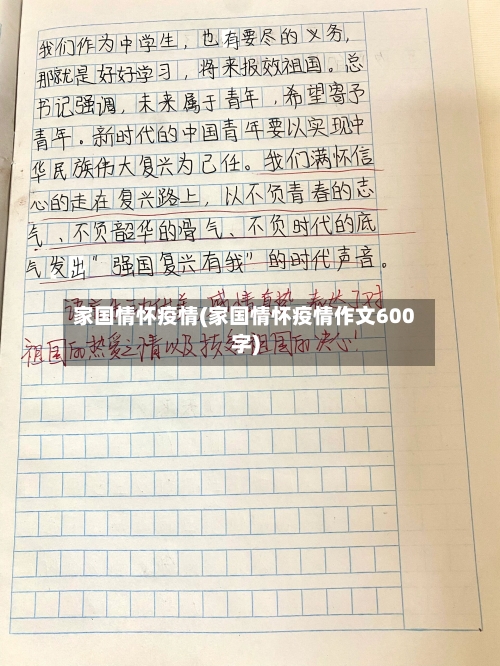 我们作为中学生，也有要尽的义务，
那就是好好学习，将来报效祖国。总
书记强调，未来属于青年，希望寄予
青年。新时代的中国青年要以实现中
华民族伟大复兴为己任。我们满怀信
心的走在复兴路上，以不负青春的志
气、不负韶华的骨气、不负时代的底
气发出“强国复兴有我”的时代声音。
感情真挚 表达了对
家国情怀疫情(家国情怀疫情作文600
字)
祖国的热爱之情以及 祖国的决心！